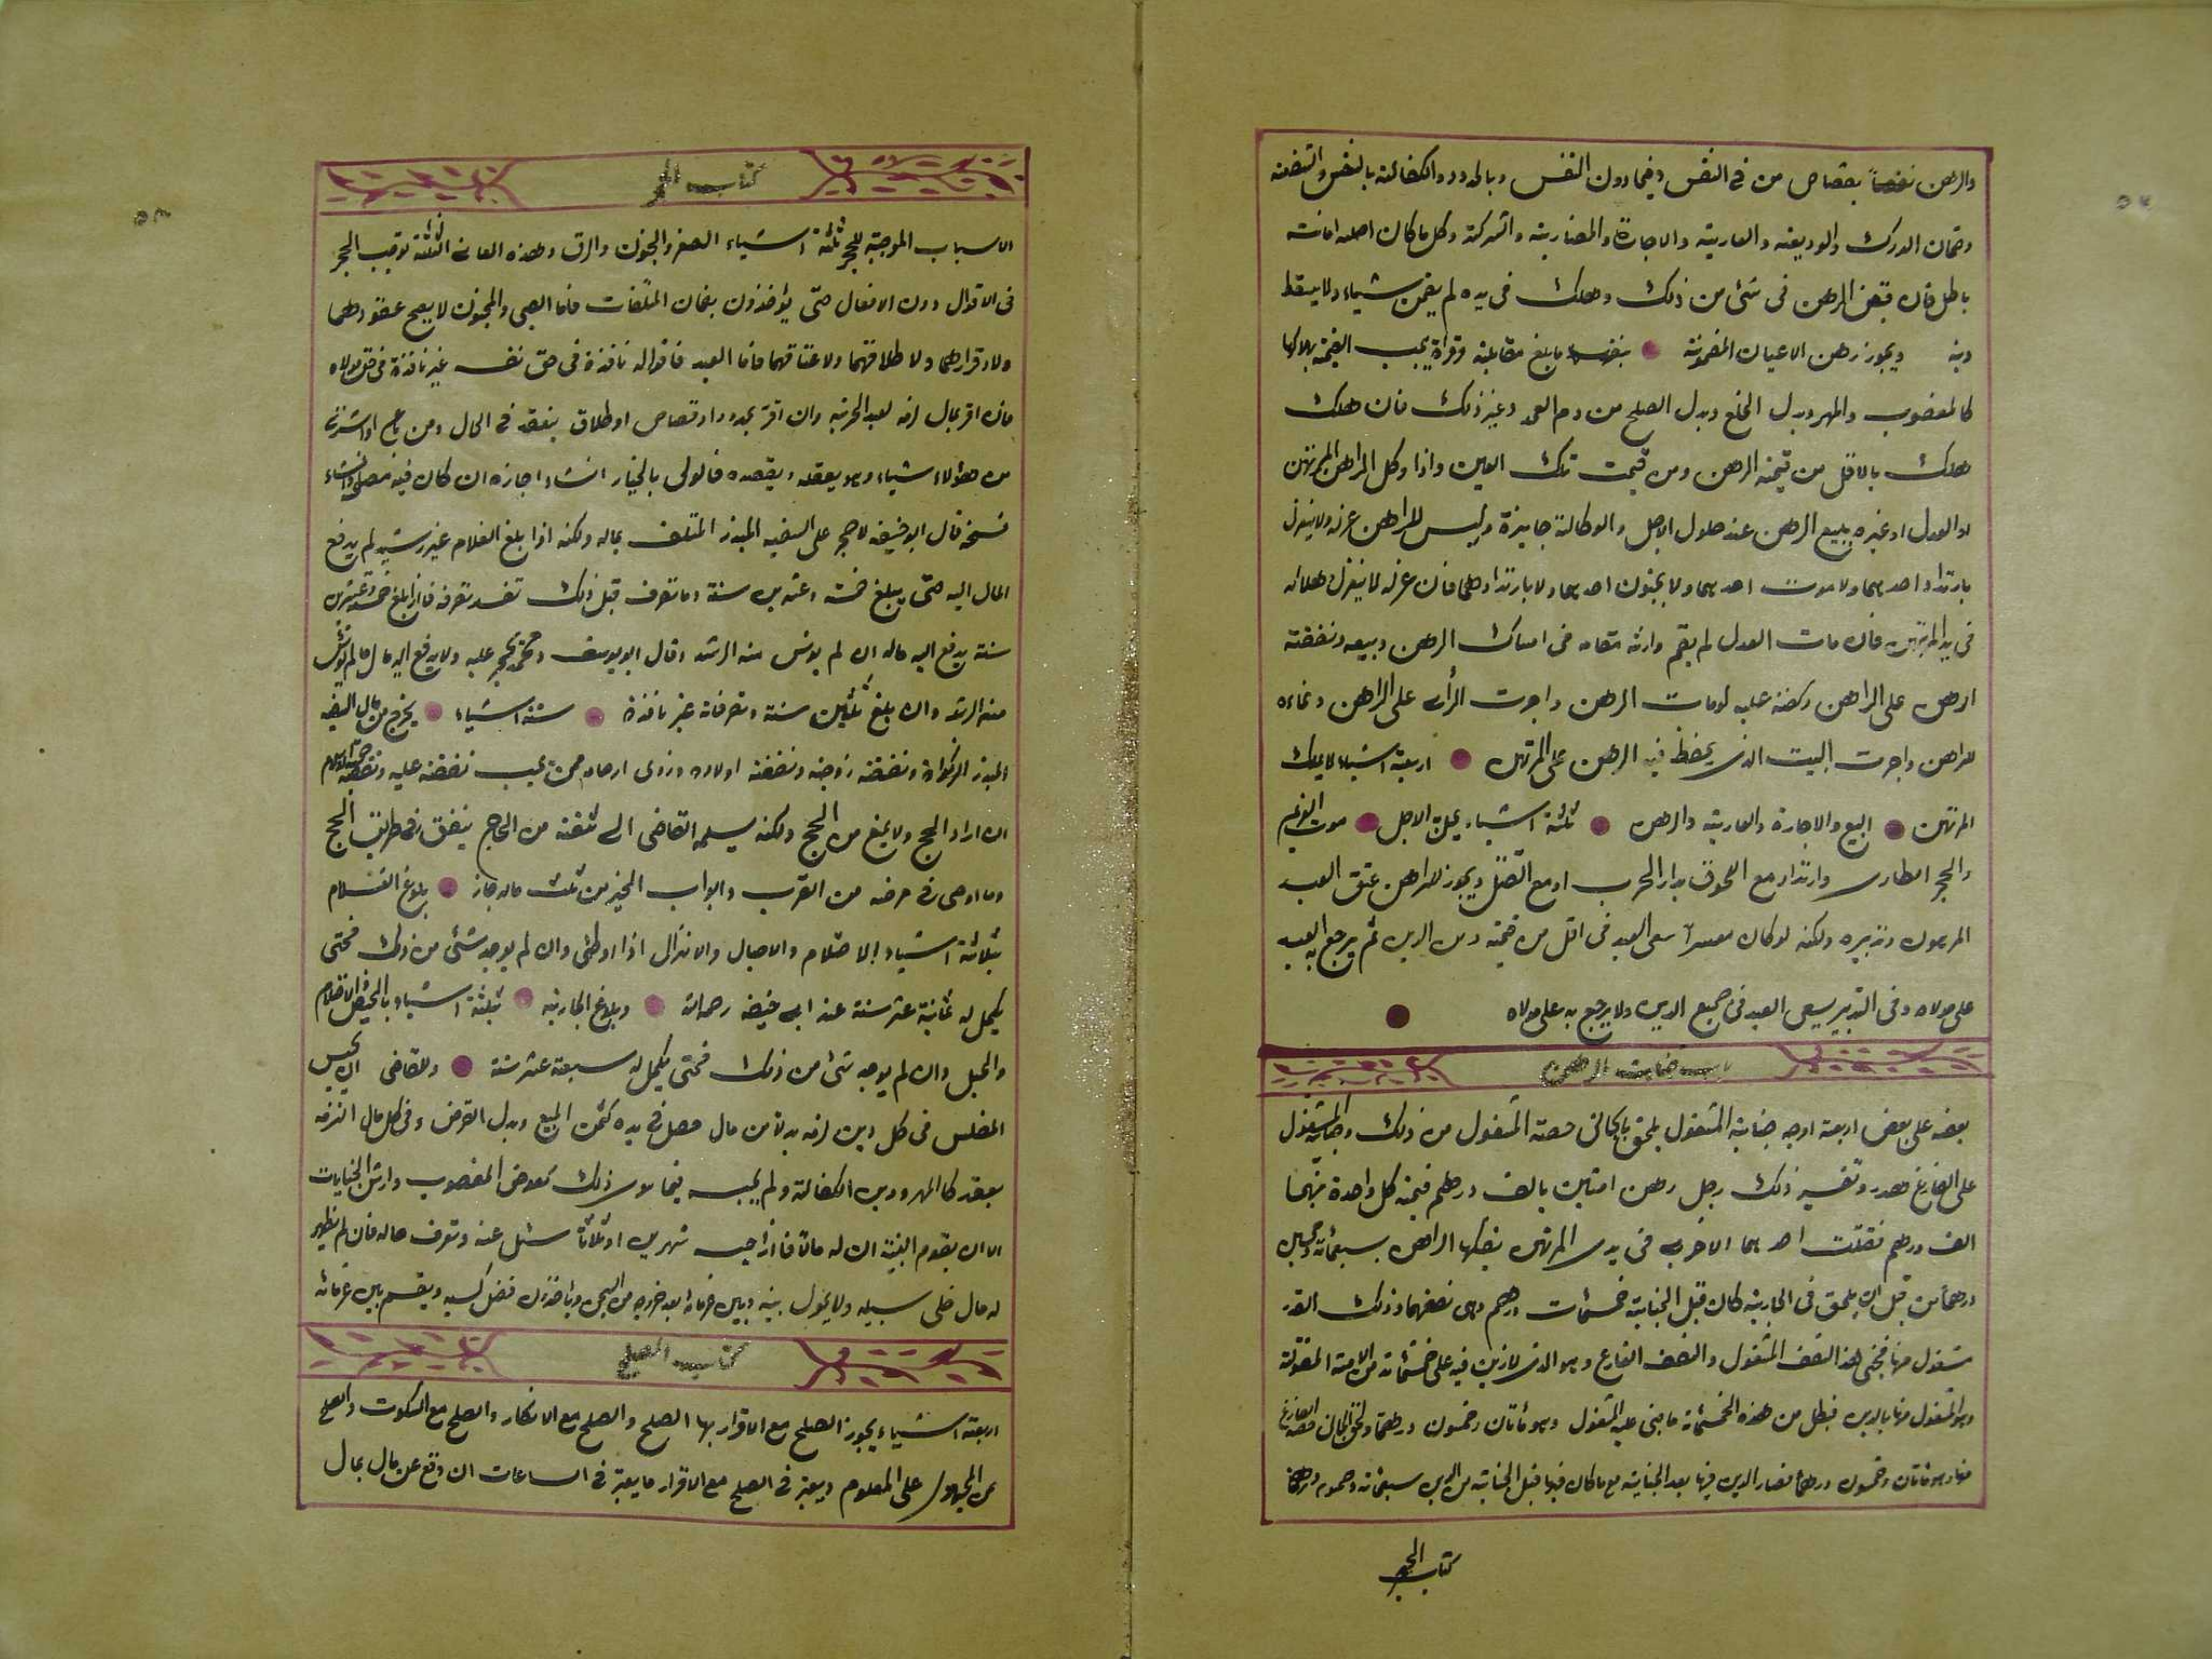 والرهن نفصاً بقصاص من فى النفس وفيما دون النفس وبالحدود والكفالة بالنفس والشفعة
وضمان الدرك والوديعة والعارية والاجارة والمضاربة والشركة وكل ما كان اصله امانت
باطل فان قبض الرهن فى شئ من ذلك وهلك فى يده لم يضمن شياء ولا يسقط
دينه ويجوز رهن الاعيان المضمونة بنفسها مابلغ مقابلته يجب القيمة بهلاكها
كالمغصوب والمهر وبدل الخلع وبدل الصلح من دم العمد وغير ذلك فان هلك
هلك بالاقل من قيمة الرهن ومن قيمت تلك العين واذا وكل الراهن المرتهن
او العدل او غيره ببيع الرهن عند حلول الاجل والوكالة جايزة وليس للراهن عزله ولا ينعزل
بارتداد احدهما ولا موت احدهما ولا بجنون احدهما ولا بارتدادهما فان عزله لا ينعزل
فى يد المرتهن فان مات العدل لم يقم وارثه مقامه فى امساك الرهن وبيعه ونفقته
الرهن على الراهن وكفنه عليه لو مات الرهن واجرت الراعى على الراهن ونماءه
للراهن واجرت البيت الذى يحفظ فيه الرهن على المرتهن اربعة اشياء لا يملك
المرتهن البيع والاجارة والعارية والرهن ثلثة اشياء يحل الاجل موت الغريم
والحجر الطارى وارتداد مع اللحوق بدار الحرب او مع القتل ويجوز للراهن عتق العبد
المرهون وتدبيره ولكنه لو كان معسراً سعى العبد فى اقل من قيمته ومن الدين ثم يرجع به العبد
على مولاه وفى التدبير يسعى العبد فى جميع الدين ولا يرجع به على مولاه
باب جنايت الرهن
بعضه على بعض اربعة اوجه جناية المشغول يلحق بالجانى حصة المشغول من ذلك وجناية المشغول
على الفارغ هدر وتفسير ذلك رجل رهن امتين بالف درهم قيمة كل واحدة منهما
الف درهم فقتلت احدهما الاخرى فى يدى المرتهن يفكها الراهن بسبعمائة وخمسين
درهماً من قبل ان يلحق فى الجارية كان قبل الجناية خمسمات درهم وهى نصفها وذلك القدر
مشغول منها فجنى هذا النصف المشغول والنصف الفارغ وهو الذى لا دين فيه على خمسمائة من الامة المقتولة
وهو المشغول منها بالدين فبطل من هذه الخمسمائة ما جنى عليه المشغول وهو مائتان وخمسون درهماً ولحق الجانى حصة الفارغ
منها وهو مائتان وخمسون درهماً فصار الدين فيها بعد الجناية مع ما كان فيها قبل الجناية من الدين سبعمائة وخمسون درهماً
كتاب الحجر
كتاب الحجر
الاسباب الموجبة للحجر ثلثة اشياء الصغر والجنون والرق وهذه المعانى الثلثة توجب الحجر
فى الاقوال دون الافعال حتى يؤخذون بضمان المتلفات فاما الصبى والمجنون لا يصح عقودهما
ولا اقرارهما ولا طلاقهما ولا عتاقهما فاما العبد فاقواله نافذة فى حق نفسه غير نافذة فى حق مولاه
فان اقر بمال لزمه بعد الحرية وان اقر بحدود او قصاص او طلاق ينفذ فى الحال ومن باع او اشترى
من هؤلاء شياء وهو يعقله ويقصده فالولى بالخيار ان شاء اجازه ان كان فيه مصلحة وان شاء
فسخه قال ابو حنيفه لا حجر على السفيه المبذر المتلف بماله ولكنه اذا بلغ الغلام غير رشيد لم يدفع
المال اليه حتى يبلغ خمسة وعشرين سنة وما تصرف قبل ذلك نفذ تصرفه فاذا بلغ خمسة وعشرين
سنة يدفع اليه ماله ان لم يونس منه الرشد وقال ابو يوسف ومحمد يحجر عليه ولا يدفع اليه مال ما لم يونس
منه الرشد وان بلغ ثمانين سنة وتصرفاته غير نافذة ستة اشياء يخرج من مال السفيه
المبذر الزكواة ونفقة زوجته ونفقة اولاده وذوى ارحامه ممن يجب نفقته عليه ونفقة حجة الاسلام
ان اراد الحج ولا يمنع من الحج ولكنه يسلمه القاضى الى ثقة من الحاج ينفق فى طريق الحج
وما اوصى فى مرضه من القرب وابواب الخير من ثلث ماله جاز بلوغ الغلام
بثلاثة اشياء الاحتلام والاحبال والانزال اذا وطئ وان لم يوجد شئ من ذلك فحتى
يكمل له ثمانية عشر سنة عند ابى حنيفه رحمه الله وبلوغ الجارية بثلثة اشياء بالحيض والاحتلام
والحبل وان لم يوجد شئ من ذلك فحتى يكمل له سبعة عشر سنة وللقاضى ان يحبس
المفلس فى كل دين لزمه بدلاً من مال حصل فى يده كثمن المبيع وبدل القرض وفى كل مال التزمه
بعقد كالمهر ودين الكفالة ولم يحبسه فيما سوى ذلك كعوض المغصوب وارش الجنايات
الا ان يقوم البينة ان له مالاً فاذا حبسه شهرين او ثلاثاً سئل عنه وتعرف حاله فان لم يظهر
له مال خلى سبيله ولا يحول بينه وبين غرمائه بعد خروجه من السجن وياخذون فضل كسبه ويقسم بين غرمائه
كتاب الصلح
اربعة اشياء يجوز الصلح مع الاقرار بها الصلح والصلح مع الانكار والصلح مع السكوت والصلح
عن المجهول على المعلوم ويعتبر فى الصلح مع الاقرار ما يعتبر فى الساعات ان وقع عن مال بمال